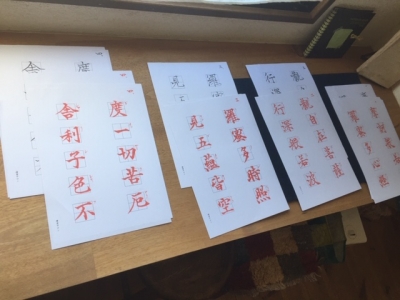 羅蜜多心経
觀
行深
觀自在菩薩
行深般若波
羅
見
羅蜜多時照
見五蘊皆空
度
舎
度一切苦厄
舎利子色不